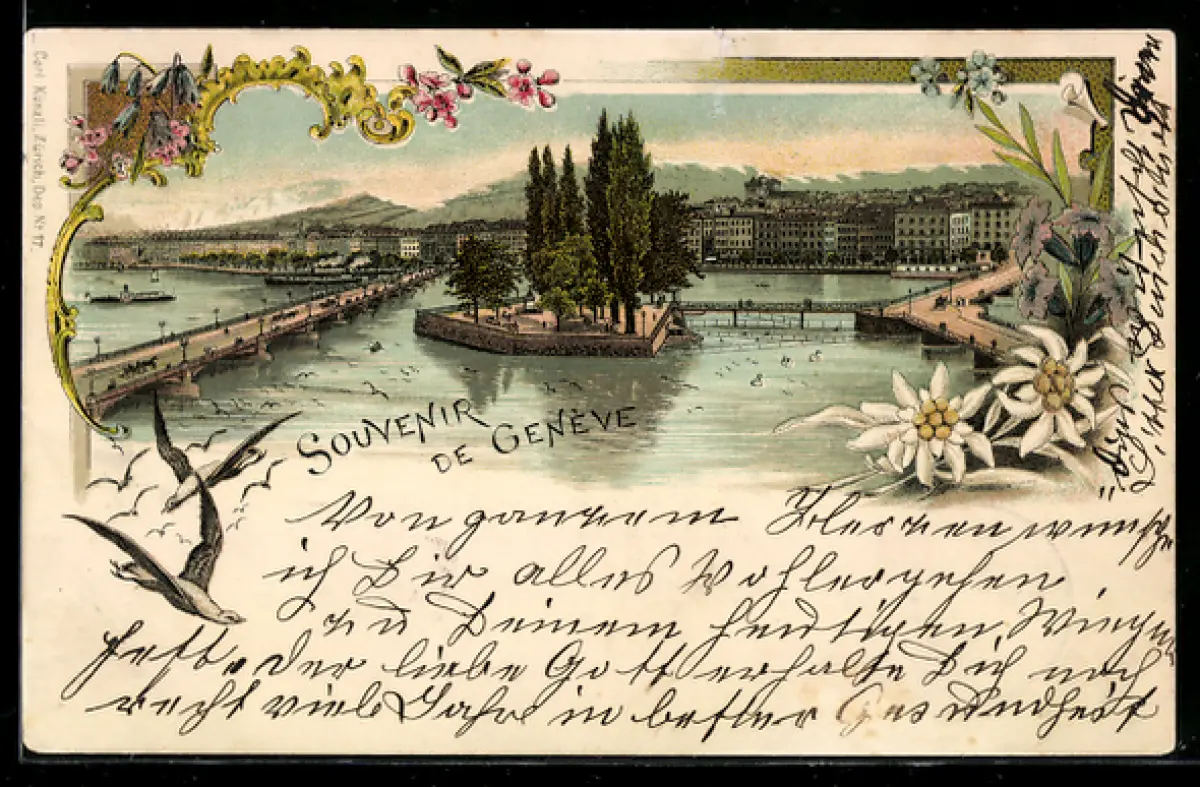 Carl Künzli, Zürich, Dep. No 17.
SOUVENIR
DE GENÈVE
Von ganzem Herzen wünsche
ich Dir alles Wohlergehen
zu Deinem heutigen Wiegen
feste der liebe Gott erhalte Dich noch
recht viele Jahre in bester Gesundheit